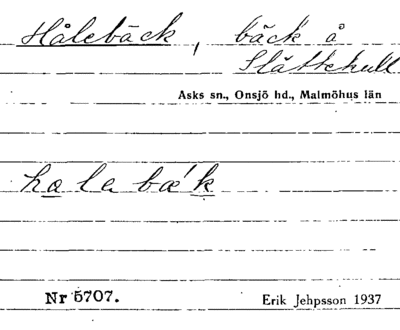 Hålebäck, bäck å
Slättehult
Asks sn., Onsjö hd., Malmöhus län
hạle bæ´k
Nr 5707.
Erik Jehpsson 1937